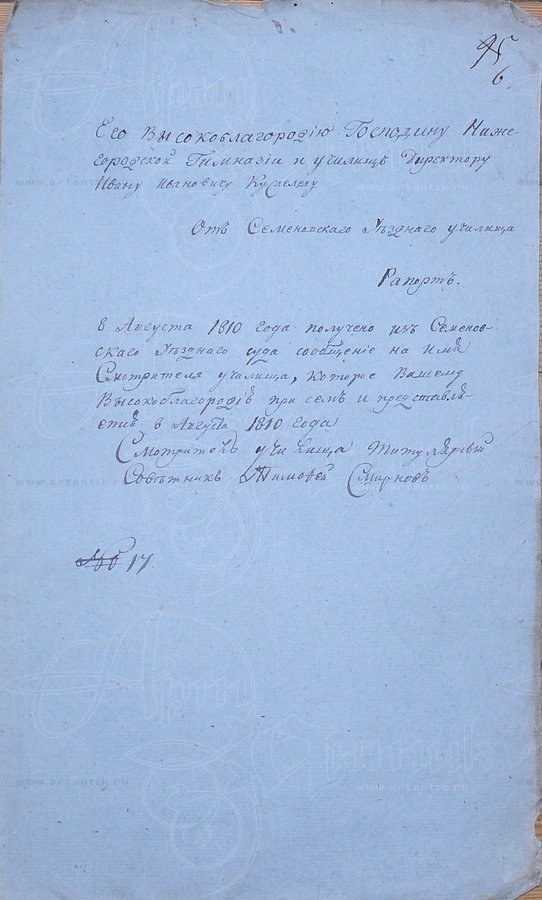 95
6
Его Высокоблагородію Господину Ниже-
городской Гимназіи и училищъ Директору
Ивану Ивановичу
Отъ Семеновскаго Уѣзднаго училища
Рапортъ.
в Августа 1810 года получено изъ Семенов-
скаго Уѣзднаго суда сообщеніе на имя
Смотрителя училища, которое Вашему
Высокоблагородію при семъ и представля-
ется в Августа 1810 года
Смотритель училища Титулярный
Совѣтникъ Тимофей Смирновъ
17
www.artantik.ru
www.artantik.ru
www.artantik.ru
www.artantik.ru
www.artantik.ru
www.artantik.ru